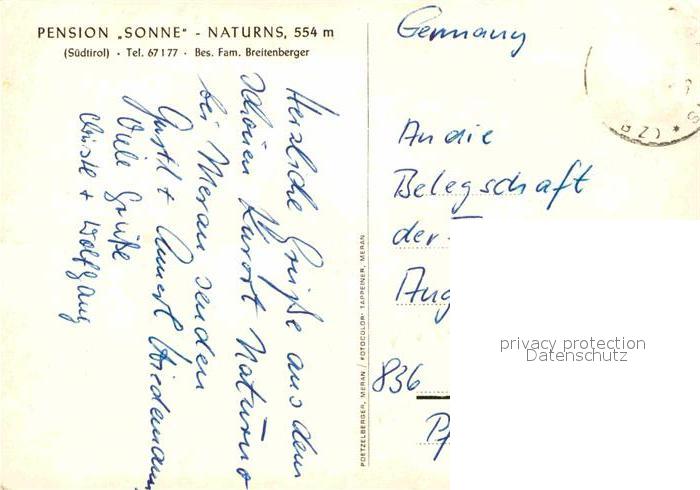 PENSION „SONNE" - NATURNS, 554 m
(Südtirol) · Tel. 67177 · Bes. Fam. Breitenberger
Herzliche Grüße aus dem
schönen Kurort Naturns
bei Meran senden
Gustl + Annerl
Viele Grüße
Christl + Wolfgang
POETZELBERGER, MERAN / FOTOCOLOR: TAPPEINER, MERAN
Germany
(BZ) *
An die
Belegschaft
der
Aug
836
Pf
privacy protection
Datenschutz